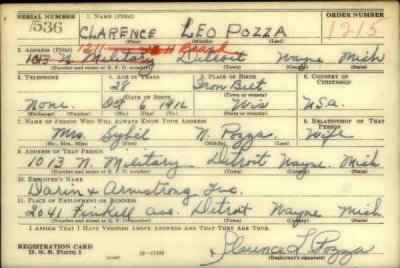 SERIAL NUMBER 1. NAME (Print) ORDER NUMBER
1536 CLARENCE LEO POZZA 1215
(First) (Middle) (Last)
2. ADDRESS (Print) 1211 Beard
1013 N. Military Detroit Wayne Mich
(Number and street or R. F. D. number) (Town) (County) (State)
3. TELEPHONE 4. AGE IN YEARS 5. PLACE OF BIRTH 6. COUNTRY OF CITIZENSHIP
28 Iron Belt
DATE OF BIRTH (Town or county)
None. Oct 6 1912 Wis U.S.a.
(Exchange) (Number) (Mo.) (Day) (Yr.) (State or country)
7. NAME OF PERSON WHO WILL ALWAYS KNOW YOUR ADDRESS 8. RELATIONSHIP OF THAT PERSON
Mrs. Sybil N. Pozza Wife
(Mr., Mrs., Miss) (First) (Middle) (Last)
9. ADDRESS OF THAT PERSON
1013 N. Military Detroit Wayne. Mich
(Number and street or R. F. D. number) (Town) (County) (State)
10. EMPLOYER'S NAME
Darin & Armstrong Inc.
11. PLACE OF EMPLOYMENT OR BUSINESS
2041 Finkell ave. Detroit Wayne Mich
(Number and street or R. F. D. number) (Town) (County) (State)
I AFFIRM THAT I HAVE VERIFIED ABOVE ANSWERS AND THAT THEY ARE TRUE.
REGISTRATION CARD
D. S. S. Form 1 Clarence L Pozza
(Registrant's signature)